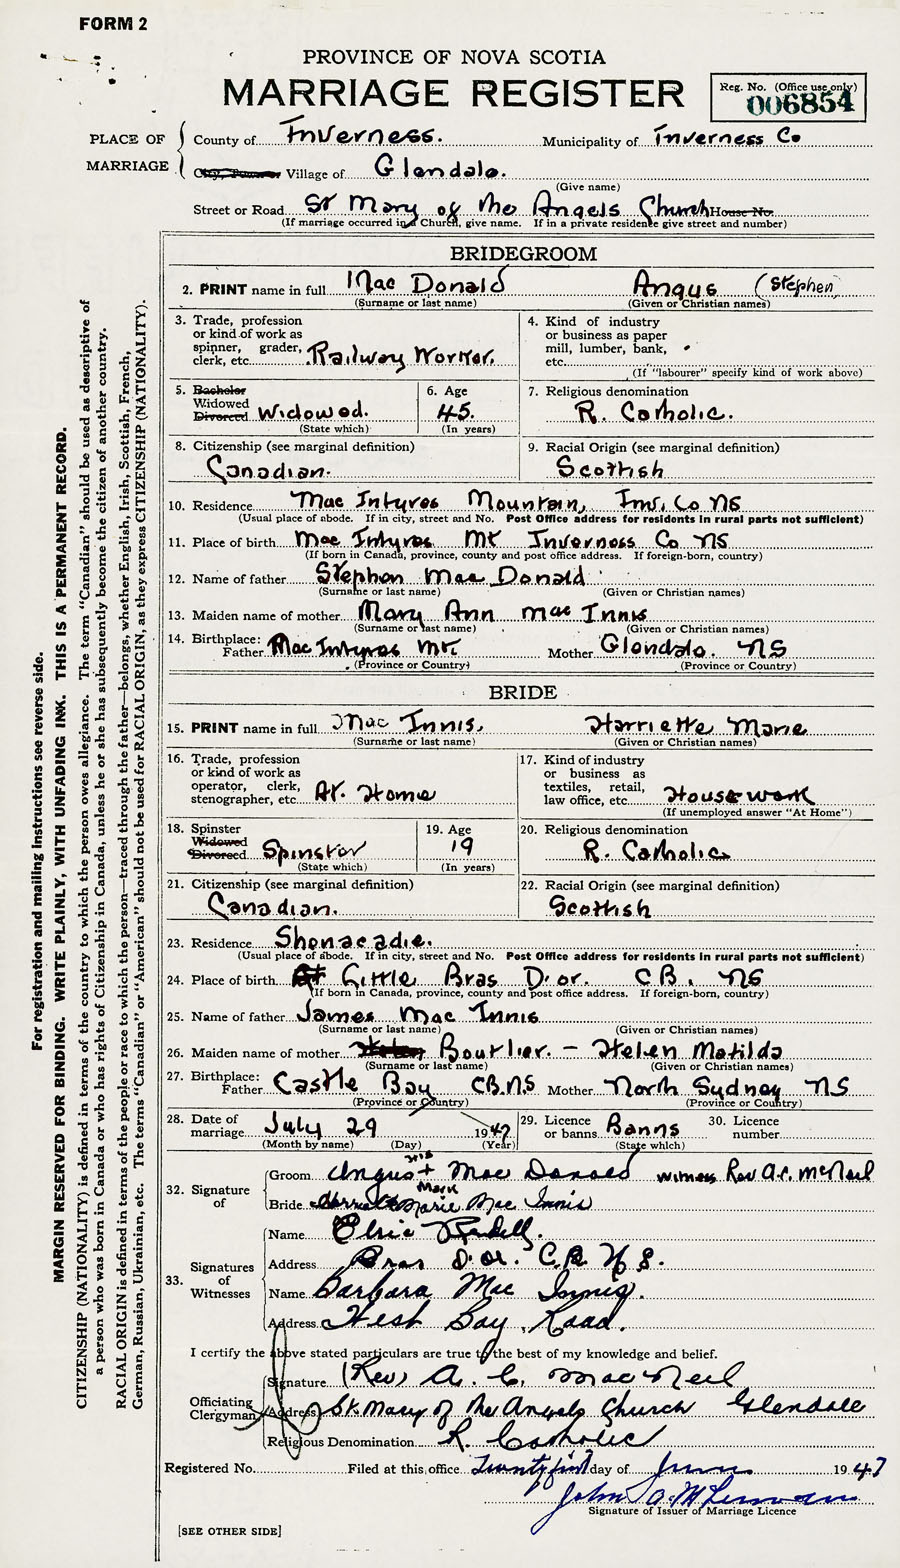 FORM 2
PROVINCE OF NOVA SCOTIA
MARRIAGE REGISTER
Reg. No. (Office use only)
006854
PLACE OF MARRIAGE
County of Inverness. Municipality of Inverness Co
City, Town or Village of Glendale.
(Give name)
Street or Road St Mary of the Angels Church House No.
(If marriage occurred in a Church, give name. If in a private residence give street and number)
BRIDEGROOM
2. PRINT name in full Mac Donald Angus (Stephen)
(Surname or last name) (Given or Christian names)
3. Trade, profession or kind of work as spinner, grader, clerk, etc. Railway Worker.
4. Kind of industry or business as paper mill, lumber, bank, etc.
(If "labourer" specify kind of work above)
5. Bachelor Widowed Divorced Widowed.
(State which)
6. Age 45.
(In years)
7. Religious denomination
R. Catholic.
8. Citizenship (see marginal definition)
Canadian.
9. Racial Origin (see marginal definition)
Scottish
10. Residence Mac Intyres Mountain, Inv. Co NS
(Usual place of abode. If in city, street and No. Post Office address for residents in rural parts not sufficient)
11. Place of birth Mac Intyres Mt Inverness Co NS
(If born in Canada, province, county and post office address. If foreign-born, country)
12. Name of father Stephen Mac Donald
(Surname or last name) (Given or Christian names)
13. Maiden name of mother Mary Ann Mac Innis
(Surname or last name) (Given or Christian names)
14. Birthplace: Father Mac Intyres Mt. Mother Glendale. NS
(Province or Country) (Province or Country)
BRIDE
15. PRINT name in full Mac Innis, Harriette Marie
(Surname or last name) (Given or Christian names)
16. Trade, profession or kind of work as operator, clerk, stenographer, etc. At. Home
17. Kind of industry or business as textiles, retail, law office, etc. Housework
(If unemployed answer "At Home")
18. Spinster Widowed Divorced Spinster
(State which)
19. Age
19
(In years)
20. Religious denomination
R. Catholic
21. Citizenship (see marginal definition)
Canadian.
22. Racial Origin (see marginal definition)
Scottish
23. Residence Shenacadie.
(Usual place of abode. If in city, street and No. Post Office address for residents in rural parts not sufficient)
24. Place of birth Little Bras D'or. C.B. NS
(If born in Canada, province, county and post office address. If foreign-born, country)
25. Name of father James Mac Innis
(Surname or last name) (Given or Christian names)
26. Maiden name of mother Boutlier. - Helen Matilda
(Surname or last name) (Given or Christian names)
27. Birthplace: Father Castle Bay CB.NS Mother North Sydney NS
(Province or Country) (Province or Country)
28. Date of marriage July 29 1947
(Month by name) (Day) (Year)
29. Licence or banns Banns
(State which)
30. Licence number
32. Signature of
Groom Angus his + Mark Mac Donald witness Rev A.C. McNeil
Bride Harriette Marie Mac Innis
33. Signatures of Witnesses
Name Elsie
Address Bras D'or. C.B. N.S.
Name Barbara Mac Innis.
Address West Bay Road.
I certify the above stated particulars are true to the best of my knowledge and belief.
Officiating Clergyman
Signature (Rev) A. C. MacNeil
Address St. Mary of the Angels Church Glendale
Religious Denomination R. Catholic
Registered No. Filed at this office Twenty first day of 1947
John
Signature of Issuer of Marriage Licence
[SEE OTHER SIDE]
For registration and mailing instructions see reverse side.
MARGIN RESERVED FOR BINDING. WRITE PLAINLY, WITH UNFADING INK. THIS IS A PERMANENT RECORD.
CITIZENSHIP (NATIONALITY) is defined in terms of the country to which the person owes allegiance. The term "Canadian" should be used as descriptive of
a person who was born in Canada or who has rights of Citizenship in Canada, unless he or she has subsequently become the citizen of another country.
RACIAL ORIGIN is defined in terms of the people or race to which the person—traced through the father—belongs, whether English, Irish, Scottish, French,
German, Russian, Ukrainian, etc. The terms "Canadian" or "American" should not be used for RACIAL ORIGIN, as they express CITIZENSHIP (NATIONALITY).